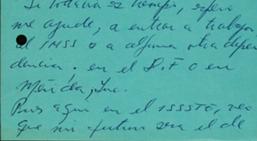 Si todavía es tiempo, espero
me ayude, a entrar a trabajar
al IMSS o a alguna otra depen
dencia. en el D.F o en
Mérida, Yuc.
Pues aquí en el ISSSTE, veo
que mi futuro será el de